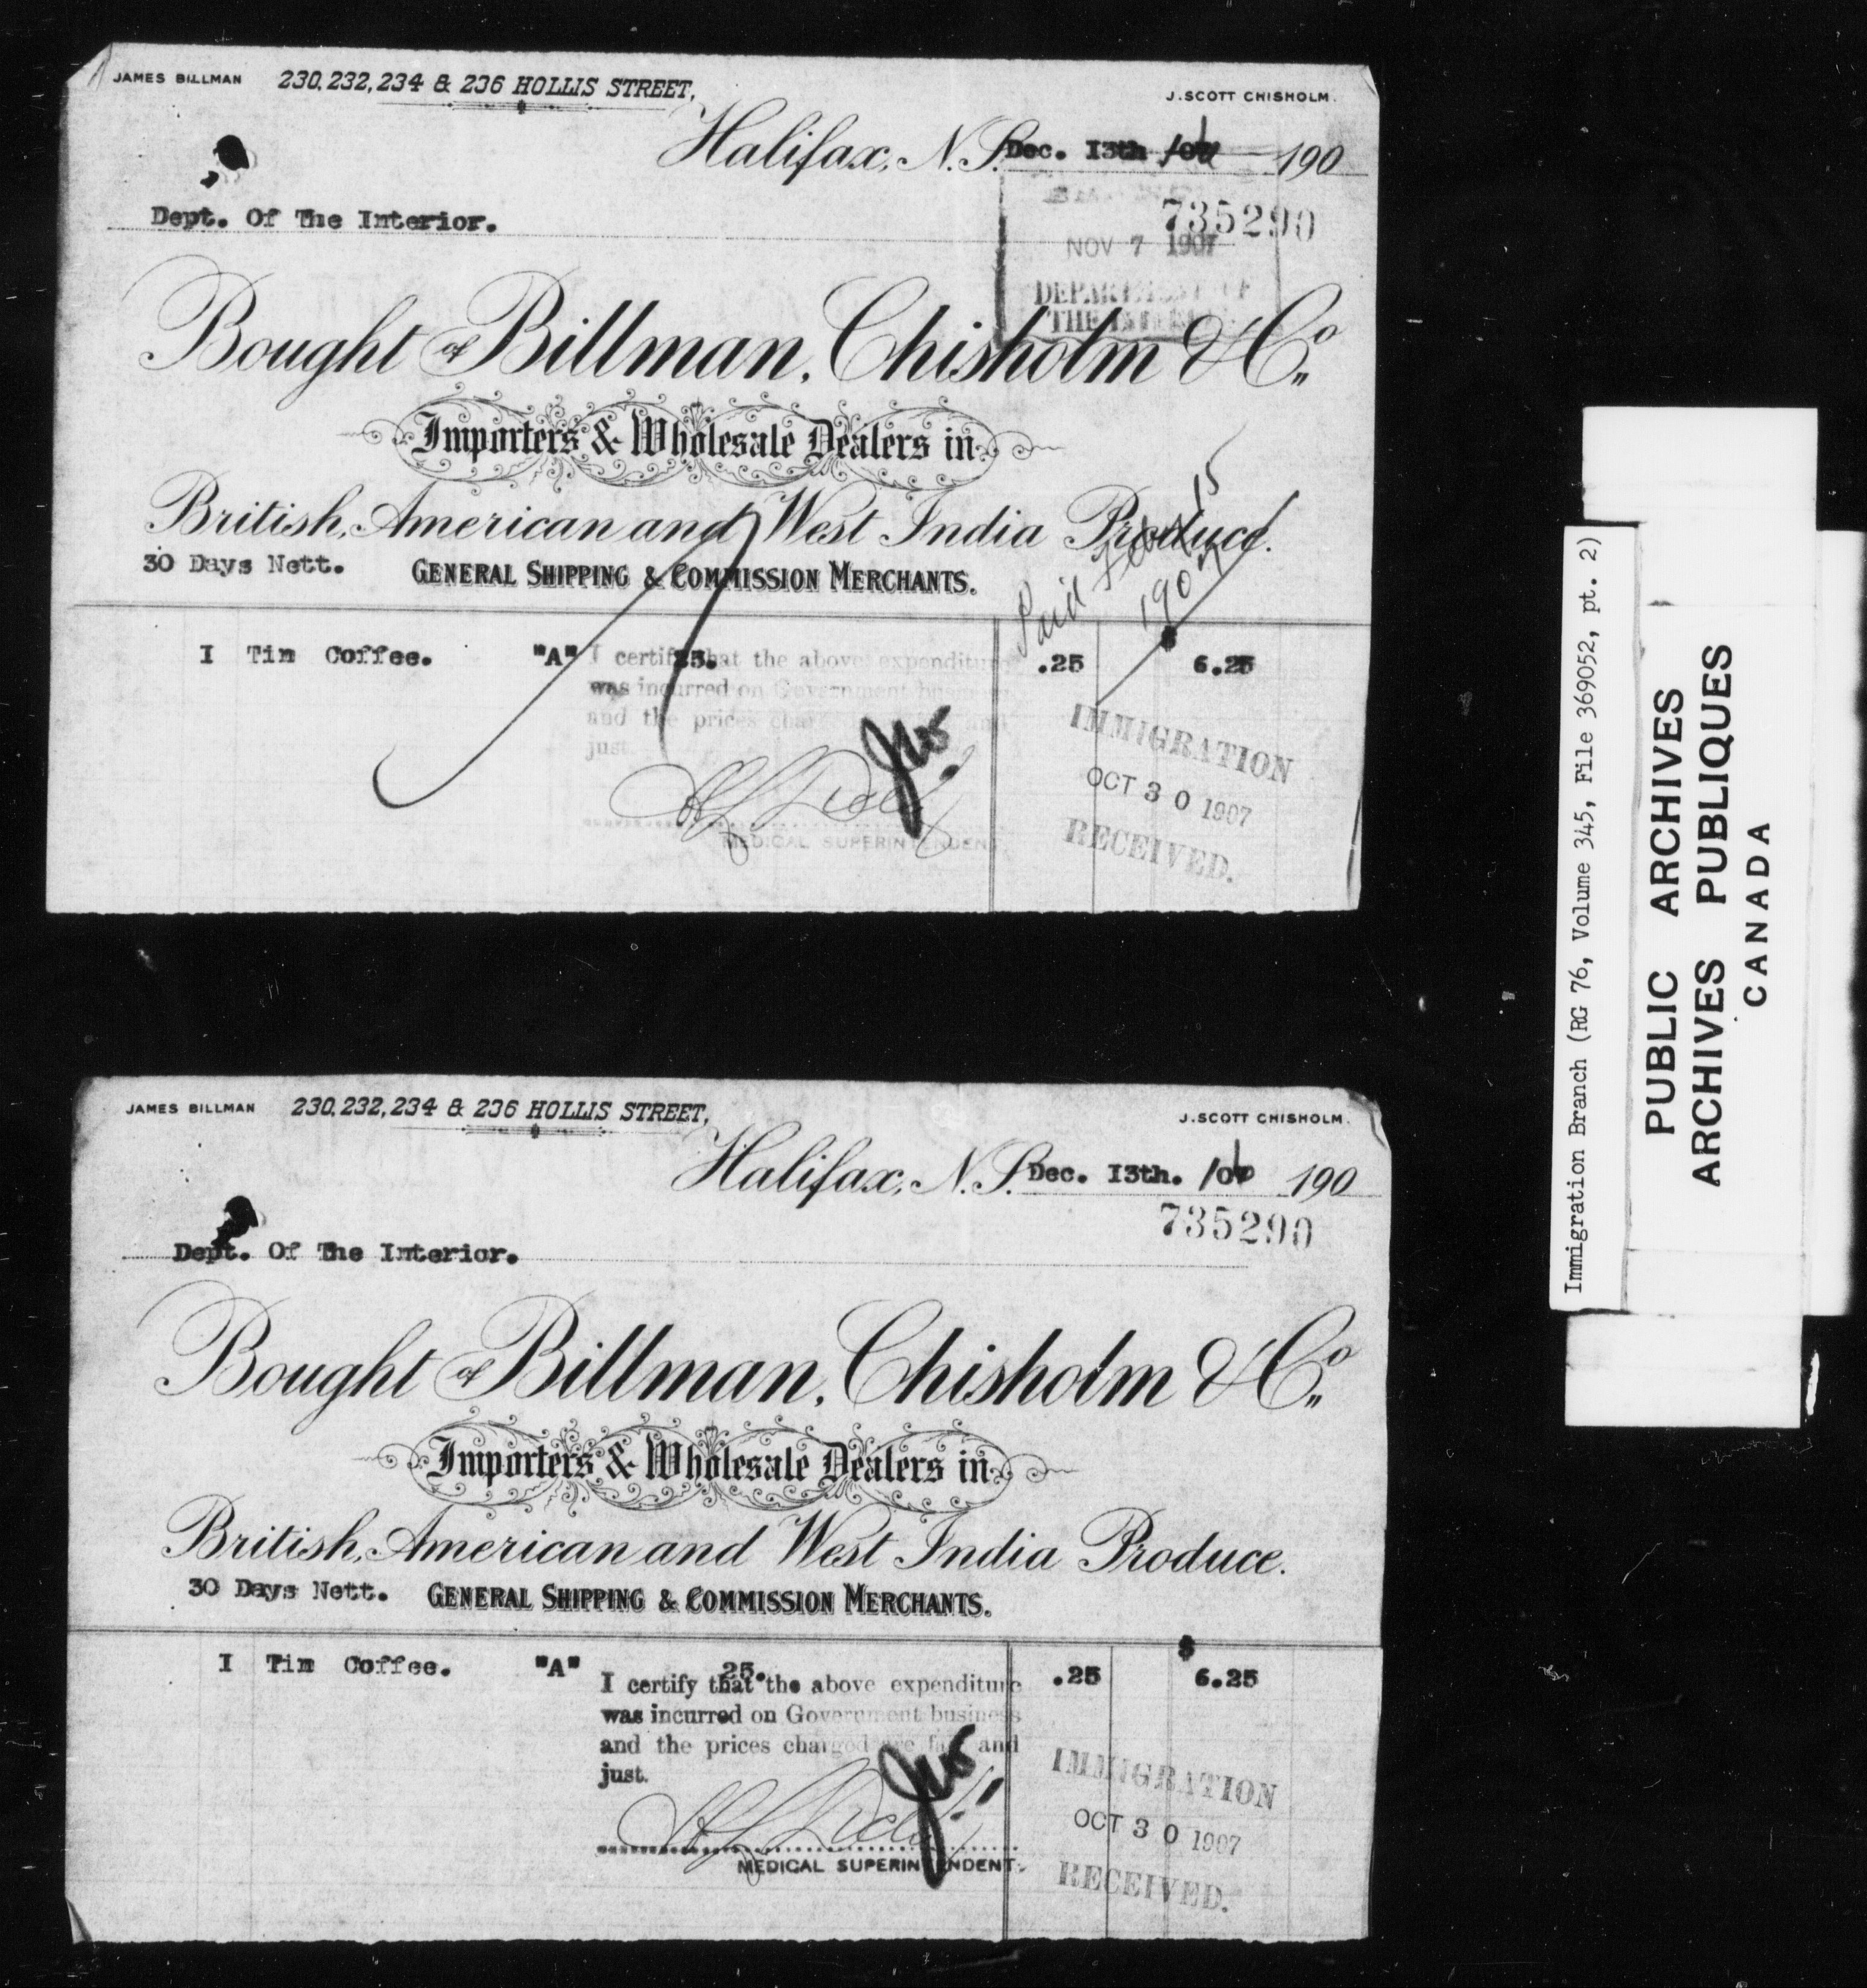 JAMES BILLMAN 230, 232, 234 & 236 HOLLIS STREET, J. SCOTT CHISHOLM.
Halifax, N.S. Dec. 13th /06 190
735290
Dept. Of The Interior.
NOV 7 1907
DEPARTMENT OF
THE INTERIOR
Bought of Billman, Chisholm & Co.,
Importers & Wholesale Dealers in
British, American and West India Produce.
30 Days Nett. GENERAL SHIPPING & COMMISSION MERCHANTS.
Paid 15
1907
$
I Tin Coffee. "A" 25. .25 6.25
I certify that the above expenditure
was incurred on Government business
and the prices charged and
just.
MEDICAL SUPERINTENDENT.
IMMIGRATION
OCT 30 1907
RECEIVED.
JAMES BILLMAN 230, 232, 234 & 236 HOLLIS STREET, J. SCOTT CHISHOLM.
Halifax, N.S. Dec. 13th. /06 190
735290
Dept. Of The Interior.
Bought of Billman, Chisholm & Co.,
Importers & Wholesale Dealers in
British, American and West India Produce.
30 Days Nett. GENERAL SHIPPING & COMMISSION MERCHANTS.
$
I Tin Coffee. "A" 25. .25 6.25
I certify that the above expenditure
was incurred on Government business
and the prices charged are fair and
just.
MEDICAL SUPERINTENDENT.
IMMIGRATION
OCT 30 1907
RECEIVED.
Immigration Branch (RG 76, Volume 345, File 369052, pt. 2)
PUBLIC ARCHIVES
ARCHIVES PUBLIQUES
CANADA